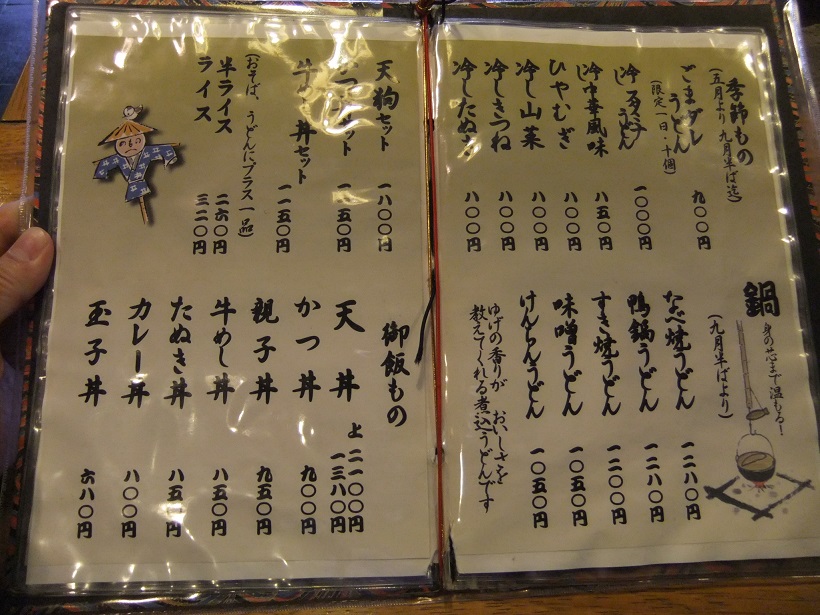 季節もの
(五月より九月半ば迄)
うどん
(限定一日・十個)
九〇〇円
うどん
一〇〇〇円
冷中華風味
八五〇円
ひやむぎ
八〇〇円
冷し山菜
八〇〇円
冷しきつね
八〇〇円
冷したぬき
八〇〇円
鍋
身の芯まで温もる!
(九月半ばより)
なべ焼うどん
一二八〇円
鴨鍋うどん
一二八〇円
すき焼うどん
一〇五〇円
味噌うどん
一〇五〇円
けんちんうどん
一〇五〇円
ゆげの香りが おいしさを
教えてくれる煮込うどんです
天狗セット
一八〇〇円
セット
一一五〇円
丼セット
一一五〇円
(おそば、うどんにプラス一品)
半ライス
二六〇円
ライス
三二〇円
御飯もの
天丼
上 二一〇〇円
一三八〇円
かつ丼
九〇〇円
親子丼
九五〇円
牛めし丼
八五〇円
たぬき丼
八五〇円
カレー丼
八〇〇円
玉子丼
六八〇円